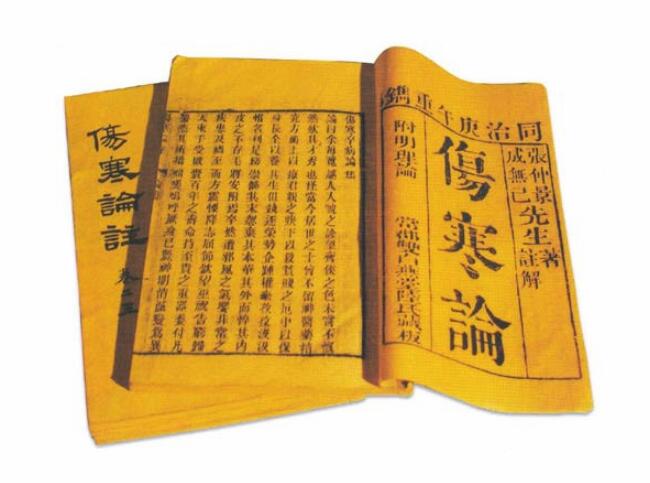 同治庚午重鐫
張仲景先生著
成無己先生註解
傷寒論
附明理論 常郡雙白燕堂陸氏藏板
傷寒卒病論集
論曰余每覽越人入虢之診望齊侯之色未嘗不慨
然歎其才秀也怪當今居世之士曾不留神醫藥精
究方術上以療君親之疾下以救貧賤之厄中以保
身長全以養其生但競逐榮勢企踵權豪孜孜汲汲
惟名利是務崇飾其末忽棄其本華其外而悴其內
皮之不存毛將安附焉卒然遭邪風之氣嬰非常之
疾患及禍至而方震慄降志屈節欽望巫祝告窮歸
天束手受敗賫百年之壽命持至貴之重器委付凡
醫恣其所措咄嗟嗚呼厥身已斃神明消滅變為異
傷寒論註